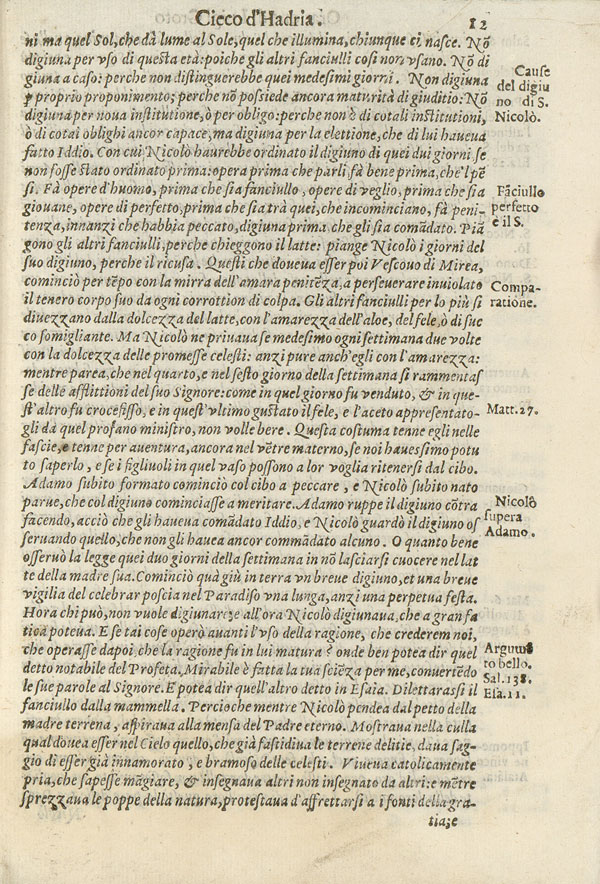 Cieco d'Hadria. 12
ni ma quel Sol, che dà lume al Sole, quel che illumina, chiunque ci nasce. Nõ
digiuna per vso di questa età: poiche gli altri fanciulli cosi non vsano. Nõ di
giuna a caso: perche non distinguerebbe quei medesimi giorni. Non digiuna
ꝑ proprio proponimento; perche nõ possiede ancora maturità di giuditio: Nõ
digiuna per noua institutione, ò per obligo: perche non è di cotali institutioni,
ò di cotai oblighi ancor capace, ma digiuna per la elettione, che di lui haueua
fatto Iddio. Con cui Nicolò haurebbe ordinato il digiuno di quei dui giorni se
non fosse stato ordinato prima: opera prima che parli, fà bene prima, che'l pẽ
si. Fà opere d'huomo, prima che sia fanciullo, opere di veglio, prima che sia
giouane, opere di perfetto, prima che sia trà quei, che incominciano, fà peni-
tenza, innanzi che habbia peccato, digiuna prima che gli sia comãdato. Piã
gono gli altri fanciulli, perche chieggono il latte: piange Nicolò i giorni del
suo digiuno, perche il ricusa. Questi che doueua esser poi Vescouo di Mirea,
cominciò per tẽpo con la mirra dell'amara penitẽza, a perseuerare inuiolato
il tenero corpo suo da ogni corrottion di colpa. Gli altri fanciulli per lo più si
diuezzano dalla dolcezza del latte, con l'amarezza dell'aloe, del fele, ò di suc
co somigliante. Ma Nicolò ne priuaua se medesimo ogni settimana due volte
con la dolcezza delle promesse celesti: anzi pure anch'egli con l'amarezza:
mentre parea, che nel quarto, e nel sesto giorno della settimana si rammentas
se delle afflittioni del suo Signore: come in quel giorno fu venduto, & in que-
st'altro fu crocefisso, e in quest'vltimo gustato il fele, e l'aceto appresentato-
gli da quel profano ministro, non volle bere. Questa costuma tenne egli nelle
fascie, e tenne per auentura, ancora nel vẽtre materno, se noi hauessimo potu
to saperlo, e se i figliuoli in quel vaso possono a lor voglia ritenersi dal cibo.
Adamo subito formato cominciò col cibo a peccare, e Nicolò subito nato
parue, che col digiuno cominciasse a meritare. Adamo ruppe il digiuno cõtra
facendo, acciò che gli haueua comãdato Iddio, e Nicolò guardò il digiuno os
seruando quello, che non gli hauea ancor commãdato alcuno. O quanto bene
osseruò la legge quei duo giorni della settimana in nõ lasciarsi cuocere nel lat
te della madre sua. Cominciò quà giù in terra vn breue digiuno, et una breue
vigilia del celebrar poscia nel Paradiso vna lunga, anzi una perpetua festa.
Hora chi può, non vuole digiunare; e all'ora Nicolò digiunaua, che a gran fa
tica poteua. E se tai cose operò auanti l'vso della ragione, che crederem noi,
che operasse dapoi, che la ragione fu in lui matura? onde ben potea dir quel
detto notabile del Profeta. Mirabile è fatta la tua sciẽza per me, conuertẽdo
le sue parole al Signore. E potea dir quell'altro detto in Esaia. Dilettarassi il
fanciullo dalla mammella. Percioche mentre Nicolò pendea dal petto della
madre terrena, aspiraua alla mensa del Padre eterno. Mostraua nella culla
qual douea esser nel Cielo quello, che già fastidiua le terrene delitie, daua sag-
gio di esser già innamorato, e bramoso delle celesti. Viueua catolicamente
pria, che sapesse mãgiare, & insegnaua altri non insegnato da altri: e mẽtre
sprezzaua le poppe della natura, protestaua d'affrettarsi a i fonti della gra-
tia; e
Cause
del digiu
no di S.
Nicolò.
Fãciullo
perfetto
è il S.
Compa-
ratione.
Matt. 27.
Nicolò
supera
Adamo.
Argumẽ
to bello.
Sal. 138.
Esa. 11.